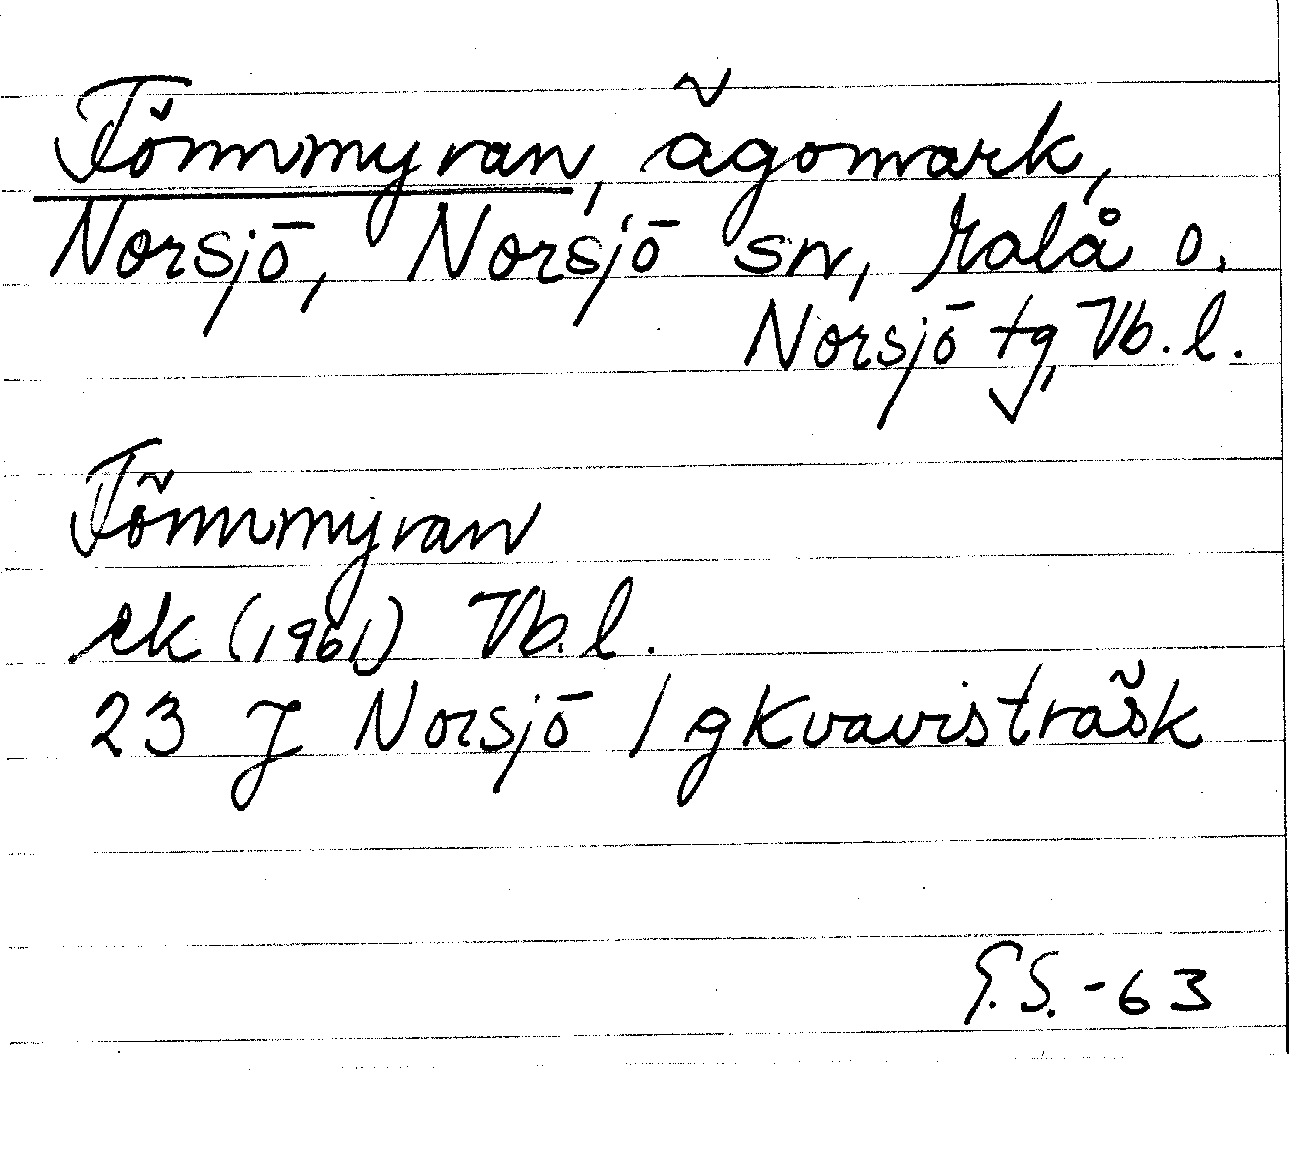 Tömmmyran, ägomark,
Norsjö, Norsjö sn, Malå o.
Norsjö tg, Vb. l.
Tömmmyran
ek (1961) Vb. l.
23 J Norsjö / g Kvavisträsk
G.S. -63